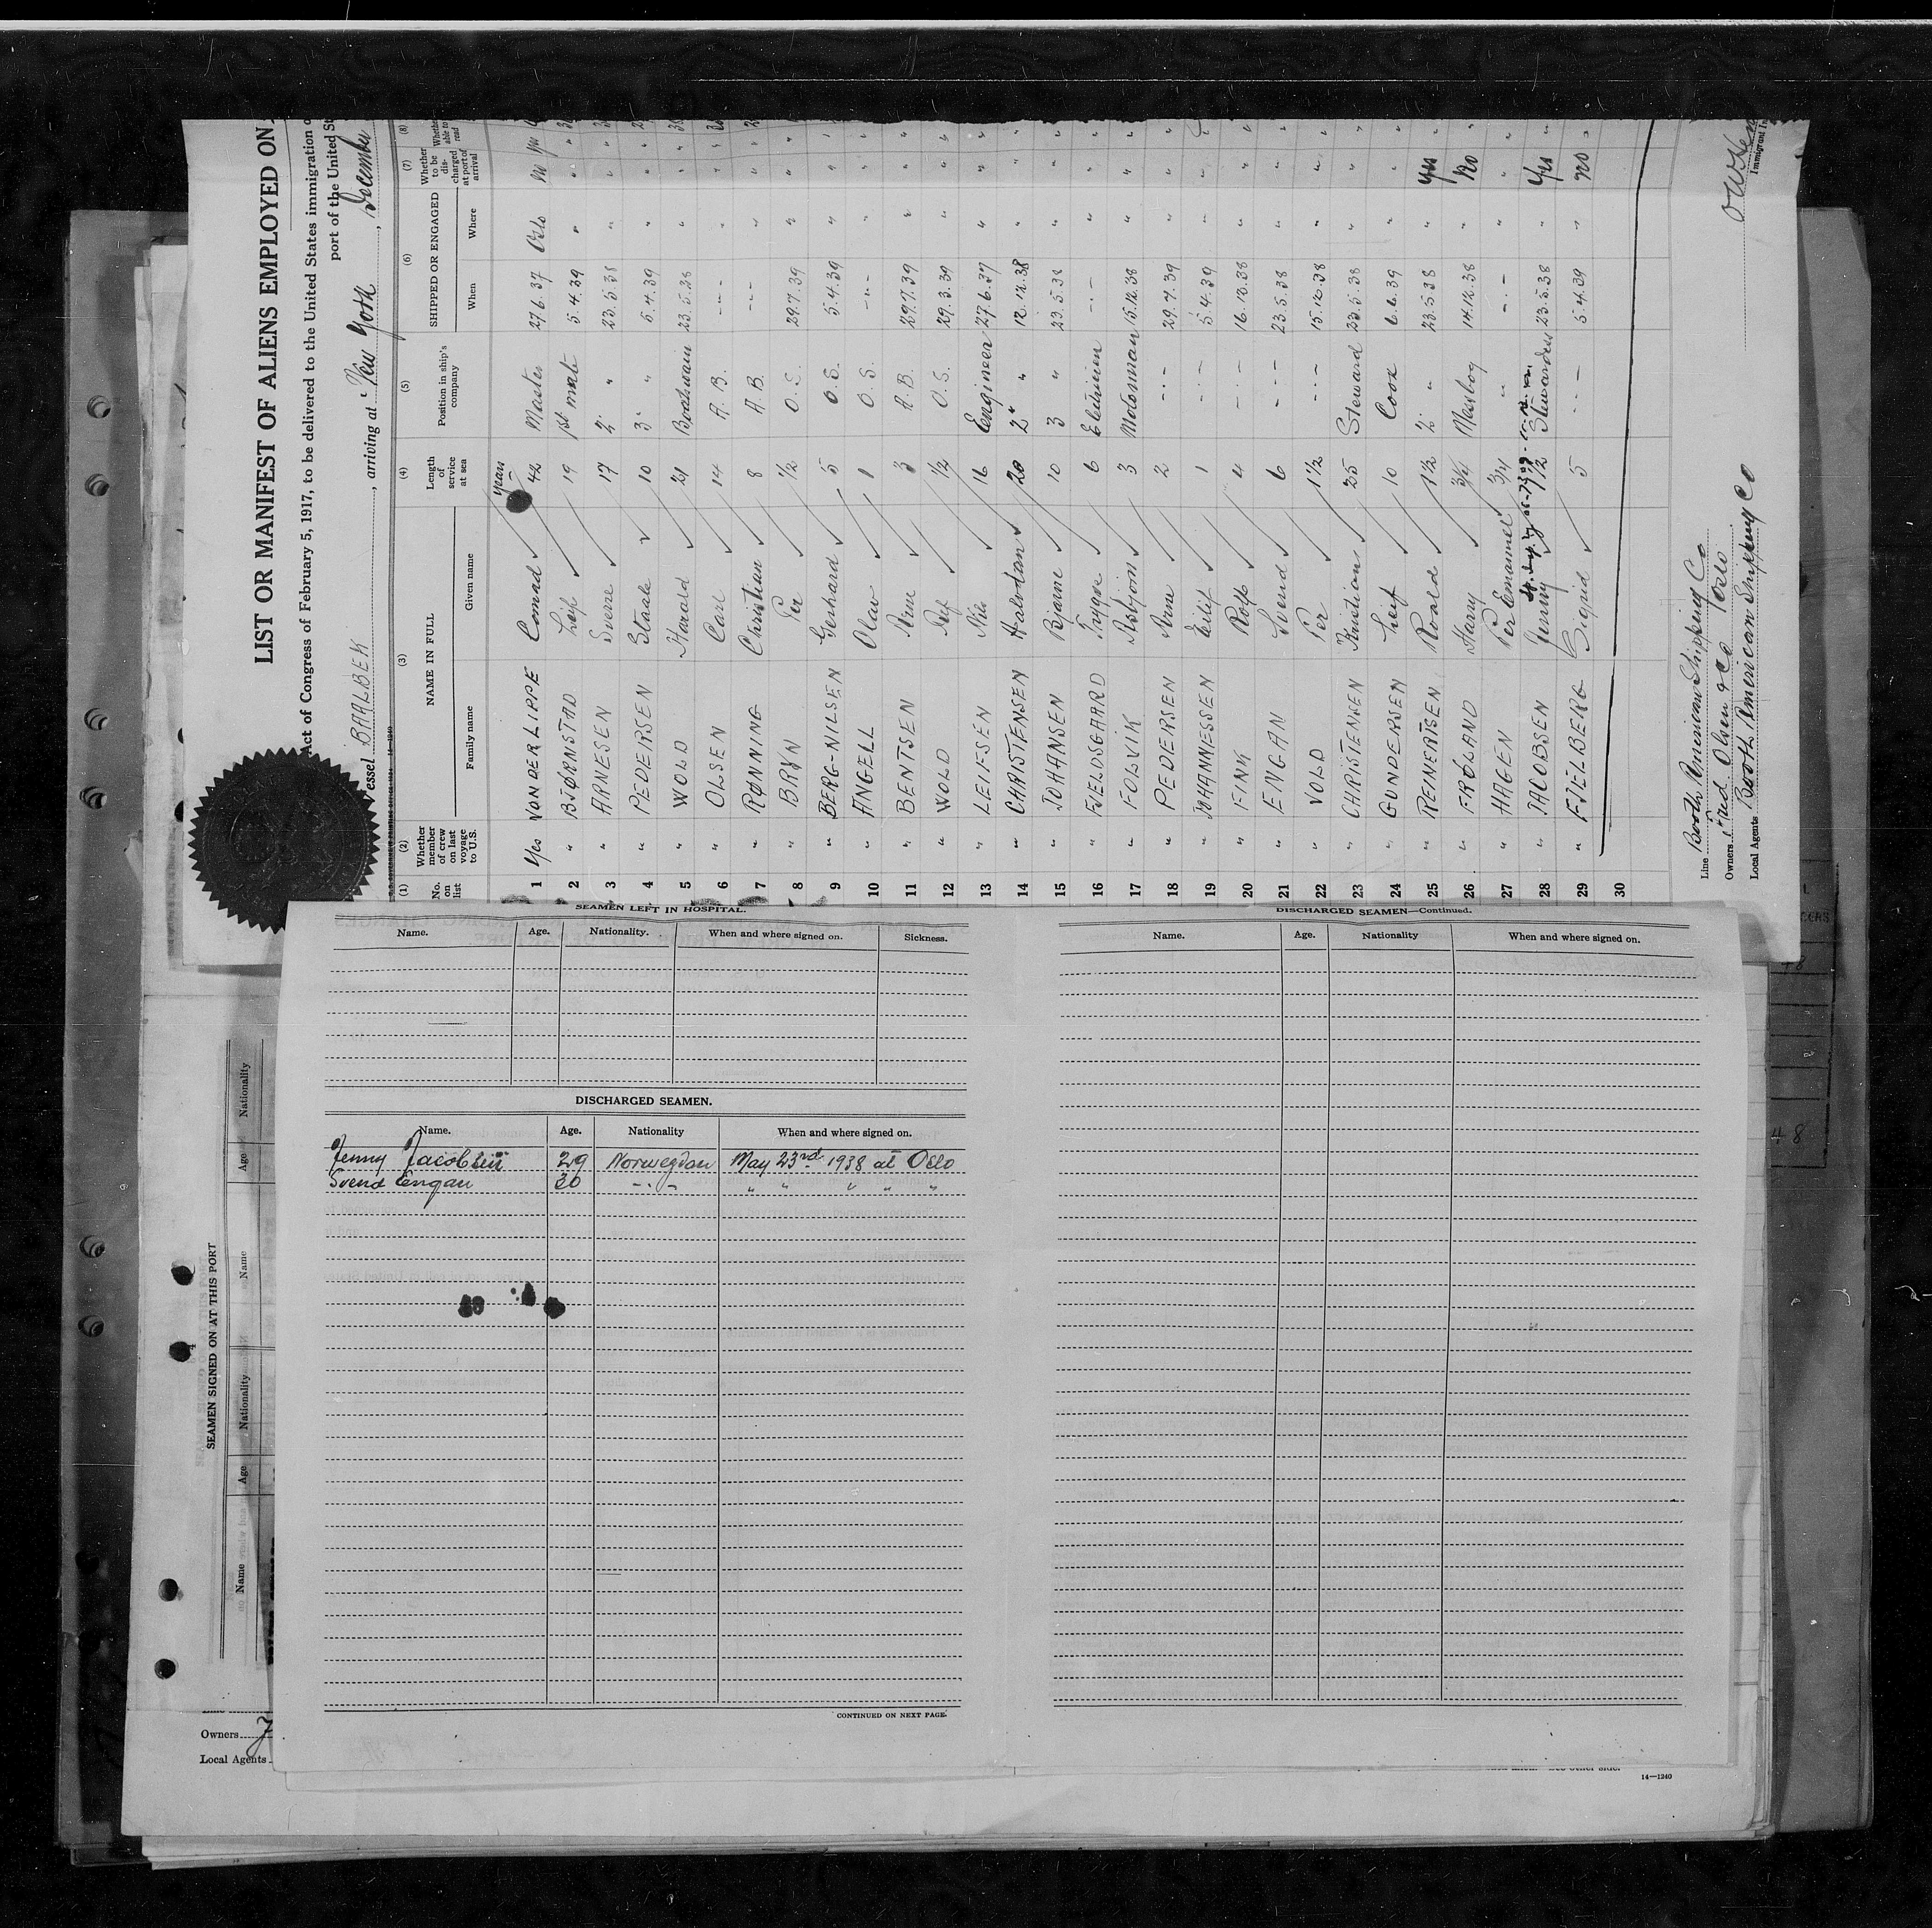 LIST OR MANIFEST OF ALIENS EMPLOYED ON
Act of Congress of February 5, 1917, to be delivered to the United States immigration o
port of the United St
Vessel BAALBEK, arriving at New York, December
(1) (2) (3) (4) (5) (6) (7) (8)
No. on list Whether member of crew on last voyage to U.S. NAME IN FULL Family name Given name Length of service at sea Position in ship's company SHIPPED OR ENGAGED When Where Whether to be discharged at port of arrival Whether able to read
years
1 Yes VON DER LIPPE Conrad 42 Master 27.6.37 Oslo No Yes
2 " BIØRNSTAD Leif 19 1st mate 5.4.39 " "
3 " ARNESEN Sverre 17 2" " 23.5.38 " "
4 " PEDERSEN Staale 10 3" " 5.4.39 " "
5 " WOLD Harald 21 Boatswain 23.5.38 " "
6 " OLSEN Carl 14 A.B. -.- " "
7 " RØNNING Christian 8 A.B. -.- " "
8 " BRYN Per 1/2 O.S. 29.7.39 " "
9 " BERG-NILSEN Gerhard 5 O.S. 5.4.39 " "
10 " ANGELL Olav 1 O.S. -.- " "
11 " BENTSEN Arne 3 A.B. 29.7.39 " "
12 " WOLD Leif 1/2 O.S. 29.3.39 " "
13 " LEIFSEN Nils 16 Engineer 27.6.37 " "
14 " CHRISTENSEN Halvdan 20 2" " 12.12.38 " "
15 " JOHANSEN Bjarne 10 3 " 23.5.38 " "
16 " FJELDSGAARD Trygve 6 Electricien -.- " "
17 " FOLVIK Asbjørn 3 Motorman 15.12.38 " "
18 " PEDERSEN Arne 2 -.- 29.7.39 " "
19 " JOHANNESSEN Eilif 1 -.- 5.4.39 " "
20 " FINK Rolf 4 -.- 16.12.38 " "
21 " ENGAN Svend 6 -.- 23.5.38 " "
22 " VOLD Per 1 1/2 -.- 15.12.38 " "
23 " CHRISTENSEN Kristian 25 Steward 23.5.38 " "
24 " GUNDERSEN Leif 10 Cook 6.6.39 " "
25 " REINERTSEN Roald 1 1/2 2" " 23.5.38 " Yes "
26 " FRØLAND Harry 3/4 Messboy 14.12.38 " No "
27 " HAGEN Per Emanuel 3/4 " -.- " " "
28 " JACOBSEN Jenny 1 1/2 Stewardess 23.5.38 " Yes "
29 " FJELBERG Sigrid 5 -.- 5.4.39 " no "
30
Line Booth American Shipping Co
Owners Fred. Olsen & Co Oslo
Local Agents Booth American Shipping Co
Immigrant In
SEAMEN LEFT IN HOSPITAL.
Name. Age. Nationality. When and where signed on. Sickness.
DISCHARGED SEAMEN.
Name. Age. Nationality When and where signed on.
Jenny Jacobsen 29 Norwegian May 23rd 1938 at Oslo
Svend Engan 30 -.- " " " " "
CONTINUED ON NEXT PAGE.
DISCHARGED SEAMEN—Continued.
Name. Age. Nationality When and where signed on.
SEAMEN SIGNED ON AT THIS PORT
Name Age Nationality Name Age Nationality
Owners
Local Agents
14—1240
48